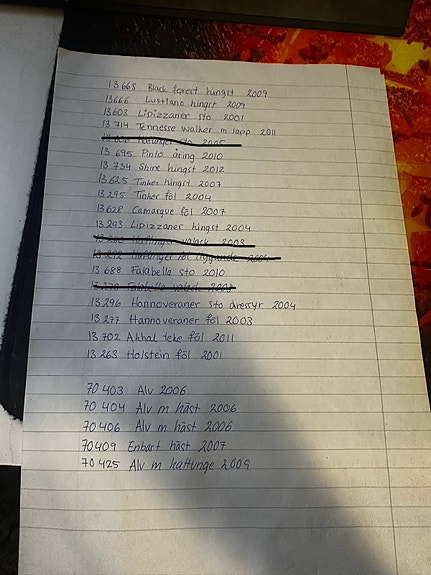 13 668 Black forest hingst 2009
13666 Lusitano hingst 2009
13608 Lipizzaner sto 2001
13 714 Tennesse walker m lapp 2011
sto 2005
13 695 Pinto åring 2010
13 734 Shire hingst 2012
13 625 Tinker hingst 2007
13 295 Tinker föl 2004
13 628 Camarque föl 2007
13 293 Lipizzaner hingst 2004
Haflinger valack 2003
Haflinger föl liggande 2004
13 688 Falabella sto 2010
Falabella valack
13 296 Hannoveraner sto dressyr 2004
13 277 Hannoveraner föl 2003
13 702 Akhal teke föl 2011
13 263 Holstein föl 2001
70 403 Alv 2006
70 404 Alv m häst 2006
70 406 Alv m häst 2006
70409 Enbart häst 2007
70 425 Alv m kattunge 2009